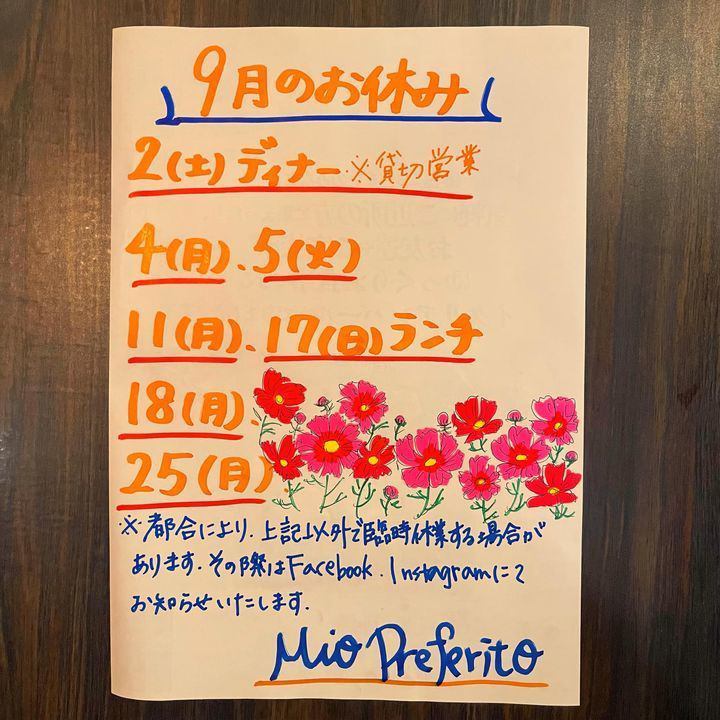 9月のお休み
2(土)ディナー※貸切営業
4(月)、5(火)
11(月)、17(日)ランチ
18(月)、
25(月)
※都合により、上記以外で臨時休業する場合が
あります。その際はFacebook、Instagramにて
お知らせいたします。
Mio Preferito